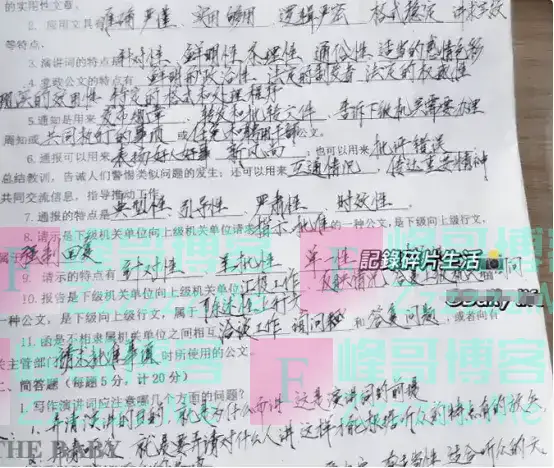 的实用性文章。
2. 应用文具有准确严谨 实用够用 逻辑严密 格式稳定 讲求实效
等特点。
3. 演讲词的特点是针对性 鲜明性 条理性 通俗性 适当的感情色彩
4. 党政公文的特点有鲜明的政治性 法定的制发者 法定的权威性
现实的效用性 特定的格式和处理程序
5. 通知是用来发布规章、转发和批转文件、告诉下级机关需要办理
周知或共同执行的事项 或任免和聘用干部公文。
6. 通报可以用来表扬好人好事 新风尚;也可以用来批评错误
总结教训,告诫人们警惕类似问题的发生;还可以用来互通情况,传达重要精神
共同交流信息,指导推动工作。
7. 通报的特点是典型性 引导性 严肃性 时效性。
8. 请示是下级机关单位向上级机关单位请求指示、批准的一种公文,是下级向上级行文,
属于强制回复
9. 请示的特点有针对性 单一性
10. 报告是下级机关单位向上级机关单位汇报工作、反映情况 答复上级 询问
一种公文,是下级向上级行文,属于陈述性上行文
11. 函是不相隶属机关单位之间相互洽谈工作、询问 和答复问题,或者向有
关主管部门请求批准事项时所使用的公文。
二、简答题(每题5分,计20分)
1. 写作演讲词应注意哪几个方面的问题?
1. 弄清演讲的目的,就是为什么而讲 这是演讲词的前提
就是要弄清对什么人讲 这样才能根据听众的特点有的放矢
适合听众的
記錄碎片生活
峰哥博客
峰哥博客
峰哥博客
THE BABY